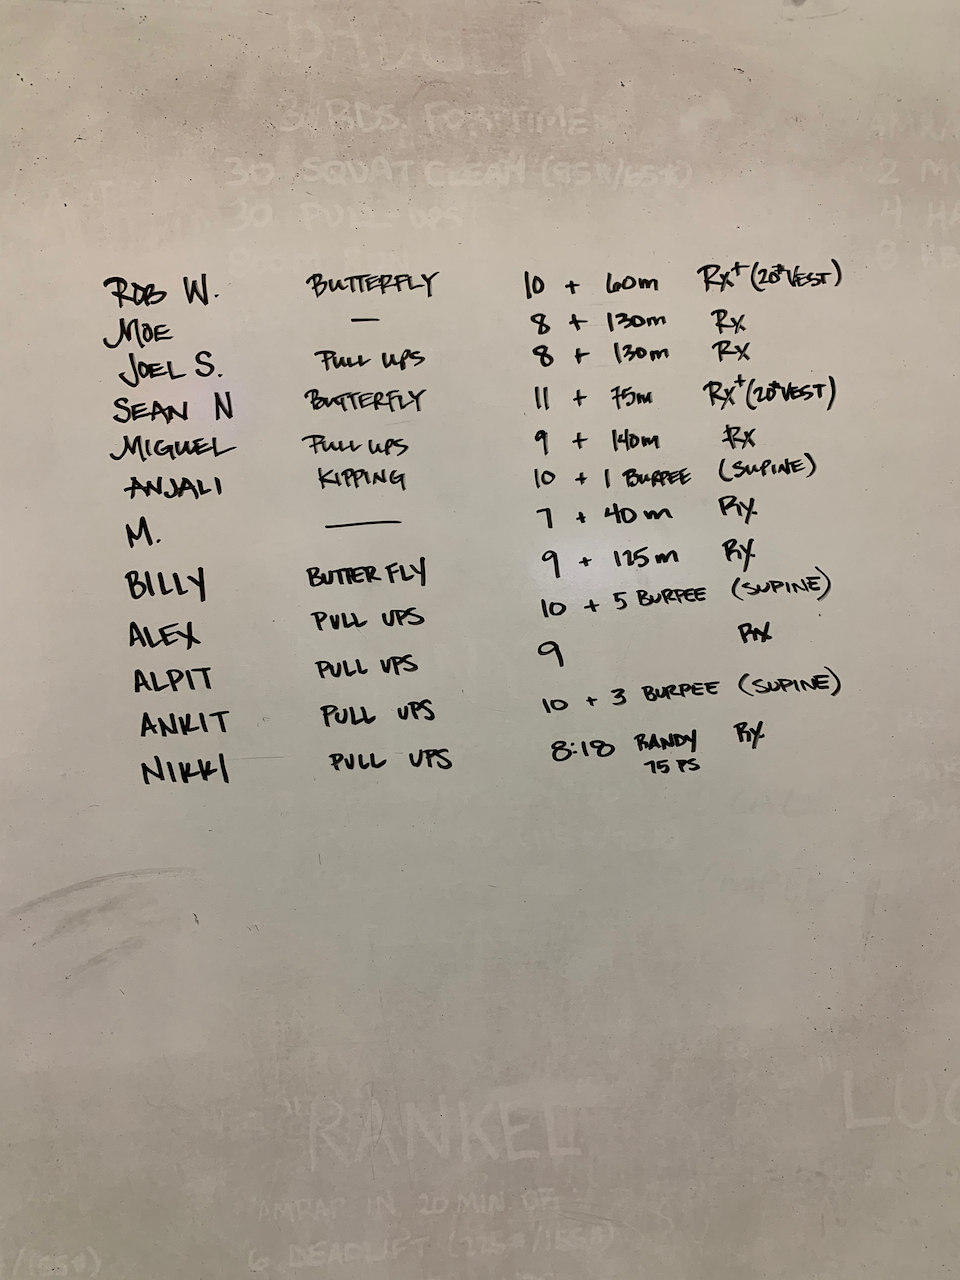 3 RDS. FOR TIME
30 SQUAT CLEAN (95#/65#)
30 PULL-UPS
ROB W. BUTTERFLY 10 + 60m Rx+ (20# VEST)
MOE — 8 + 130m Rx
JOEL S. PULL UPS 8 + 130m Rx
SEAN N BUTTERFLY 11 + 75m Rx+ (20# VEST)
MIGUEL PULL UPS 9 + 140m Rx
ANJALI KIPPING 10 + 1 BURPEE (SUPINE)
M. — 7 + 40m Rx
BILLY BUTTERFLY 9 + 125m Rx
ALEX PULL UPS 10 + 5 BURPEE (SUPINE)
ALPIT PULL UPS 9 Rx
ANKIT PULL UPS 10 + 3 BURPEE (SUPINE)
NIKKI PULL UPS 8:18 RANDY Rx
75 PS
"RANKEL"
AMRAP IN 20 MIN. OF
6 DEADLIFT (225#/155#)